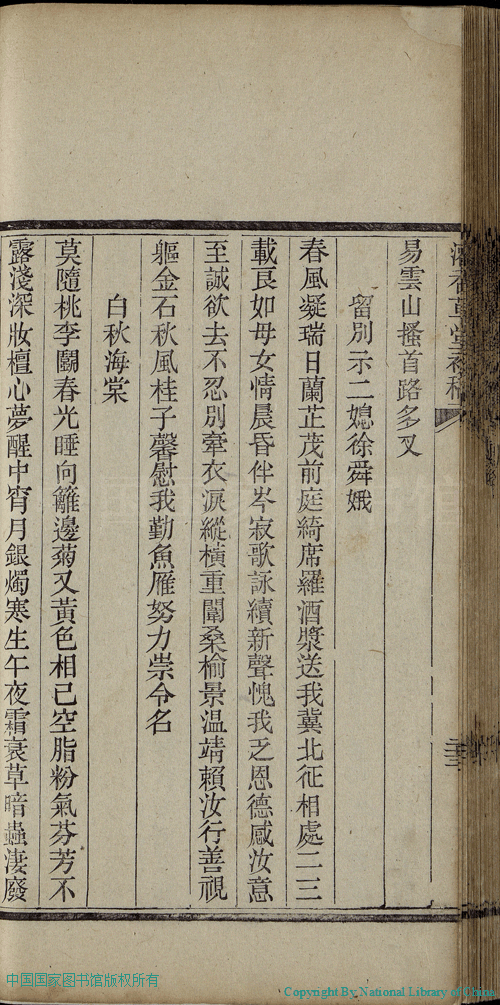 草堂
易雲山搔首路多叉
留別示二媳徐舜娥
春風凝瑞日蘭芷茂前庭綺席羅酒漿送我冀北征相處二三
載艮如母女情晨昏伴岑寂歌詠續新聲愧我乏恩德感汝意
至誠欲去不忍別牽衣淚縱橫重闈桑榆景溫靖賴汝行善視
軀金石秋風桂子馨慰我勤魚雁努力崇令名
白秋海棠
莫隨桃李鬬春光睡向籬邊菊又黃色相已空脂粉氣芬芳不
露淺深妝檀心夢醒中宵月銀燭寒生午夜霜衰草暗蟲淒廢
中国国家图书馆版权所有
Copyright By National Library of China